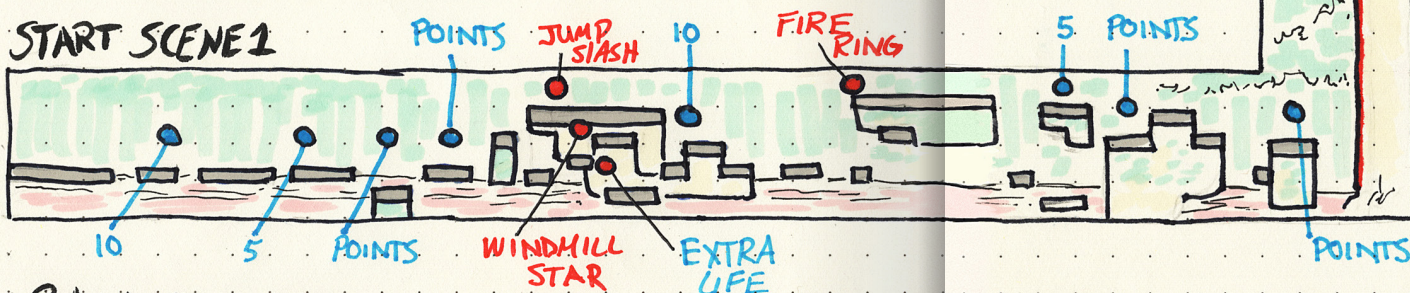 START SCENE1
POINTS
JUMP
SLASH
10
FIRE
RING
5
POINTS
10
5
POINTS
WINDMILL
STAR
EXTRA
LIFE
POINTS